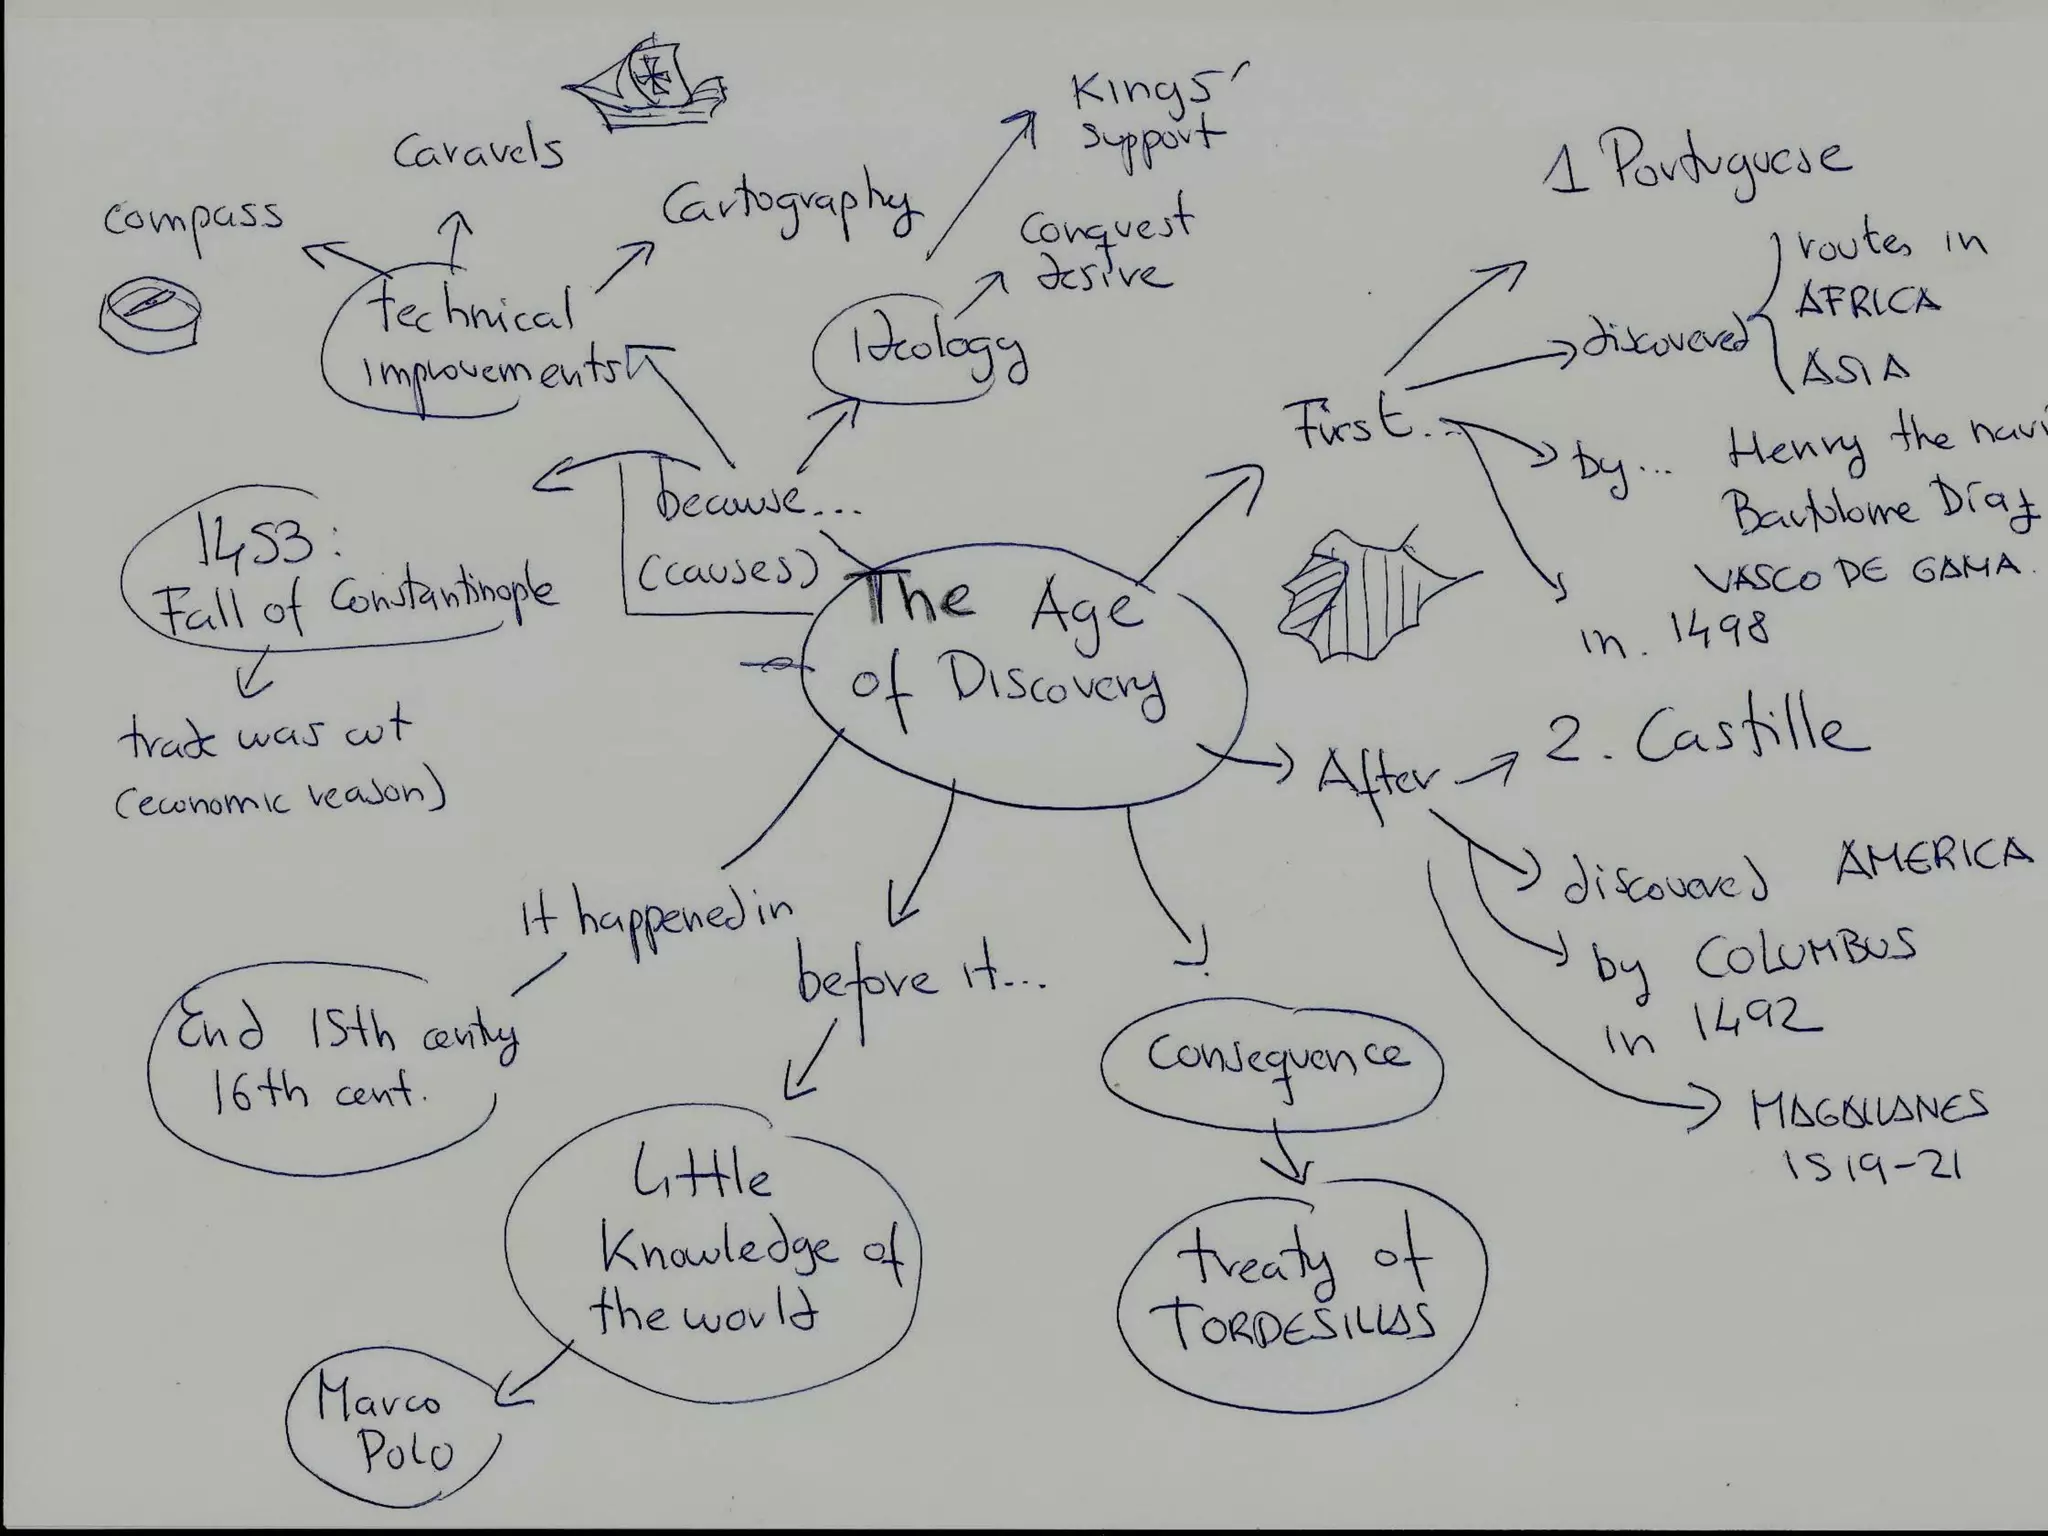 Kings'
support
Caravels
Cartography
compass
Conquest
desire
technical
improvements
Ideology
1 Portuguese
routes in
AFRICA
ASIA
discovered
First...
by... Henry the navi
Bartolome Díaz
VASCO DE GAMA.
in. 1498
because...
(causes)
1453:
Fall of Constantinople
trade was cut
(economic reason)
The Age
of Discovery
After
2. Castille
discovered AMERICA
by COLUMBUS
in 1492
MAGALLANES
1519-21
It happened in
End 15th century
16th cent.
before it...
Little
Knowledge of
the world
Marco
Polo
Consequence
treaty of
TORDESILLAS